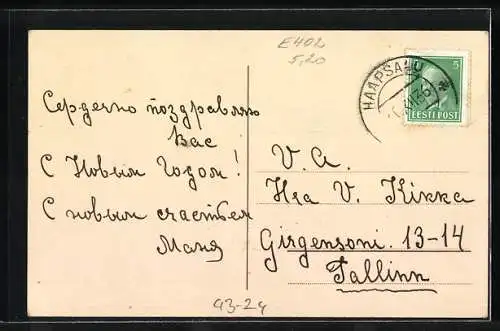 EH02
5,20
HAAPSALU
5
EESTI POST
Сердечно поздравляю
Вас
С Новым Годом!
С новым счастьем
Маня
V. A.
Hra V. Kikka
Girgensoni. 13-14
Tallinn
93-24